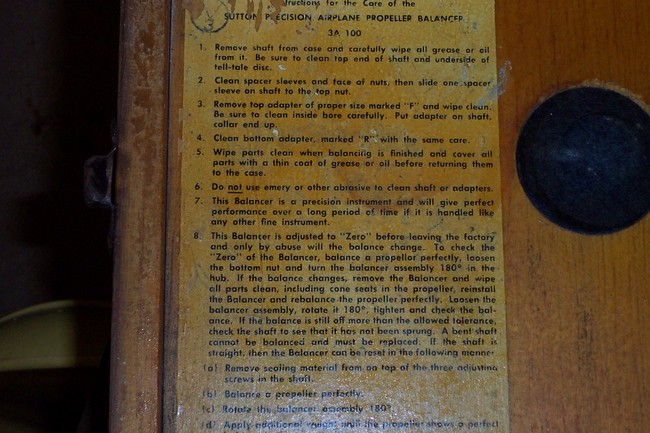 structions for the Care of the
SUTTON PRECISION AIRPLANE PROPELLER BALANCER
3A 100
1. Remove shaft from case and carefully wipe all grease or oil
from it. Be sure to clean top end of shaft and underside of
tell-tale disc.
2. Clean spacer sleeves and face of nuts, then slide one spacer
sleeve on shaft to the top nut.
3. Remove top adapter of proper size marked "F" and wipe clean.
Be sure to clean inside bore carefully. Put adapter on shaft,
collar end up.
4. Clean bottom adapter, marked "R" with the same care.
5. Wipe parts clean when balancing is finished and cover all
parts with a thin coat of grease or oil before returning them
to the case.
6. Do not use emery or other abrasive to clean shaft or adapters.
7. This Balancer is a precision instrument and will give perfect
performance over a long period of time if it is handled like
any other fine instrument.
8. This Balancer is adjusted to "Zero" before leaving the factory
and only by abuse will the balance change. To check the
"Zero" of the Balancer, balance a propeller perfectly, loosen
the bottom nut and turn the balancer assembly 180° in the
hub. If the balance changes, remove the Balancer and wipe
all parts clean, including cone seats in the propeller, reinstall
the Balancer and rebalance the propeller perfectly. Loosen the
balancer assembly, rotate it 180°, tighten and check the bal-
ance. If the balance is still off more than the allowed tolerance,
check the shaft to see that it has not been sprung. A bent shaft
cannot be balanced and must be replaced. If the shaft is
straight, then the Balancer can be reset in the following manner
(a) Remove sealing material from on top of the three adjusting
screws in the shaft.
(b) Balance a propeller perfectly.
(c) Rotate the balancer assembly 180°
(d) Apply additional weight until the propeller shows a perfect